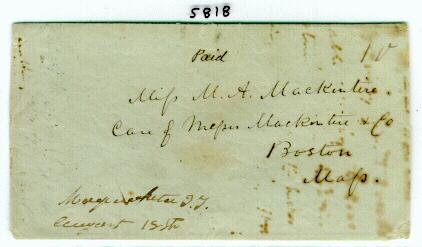 5818
Paid 10
Miss M. A. Mackintire
Care of Messrs Mackintire & Co
Boston
Mass.
August 18th